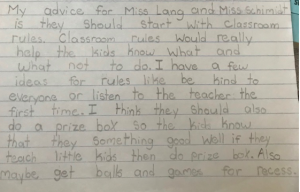 My advice for Miss Lang and Miss Schimidt
is they should start with Classroom
rules. Classroom rules would really
help the kids know what and
what not to do. I have a few
ideas for rules like be kind to
everyone or listen to the teacher the
first time. I think they should also
do a prize box so the kids know
that they something good well if they
teach little kids then do prize box. Also
maybe get balls and games for recess.